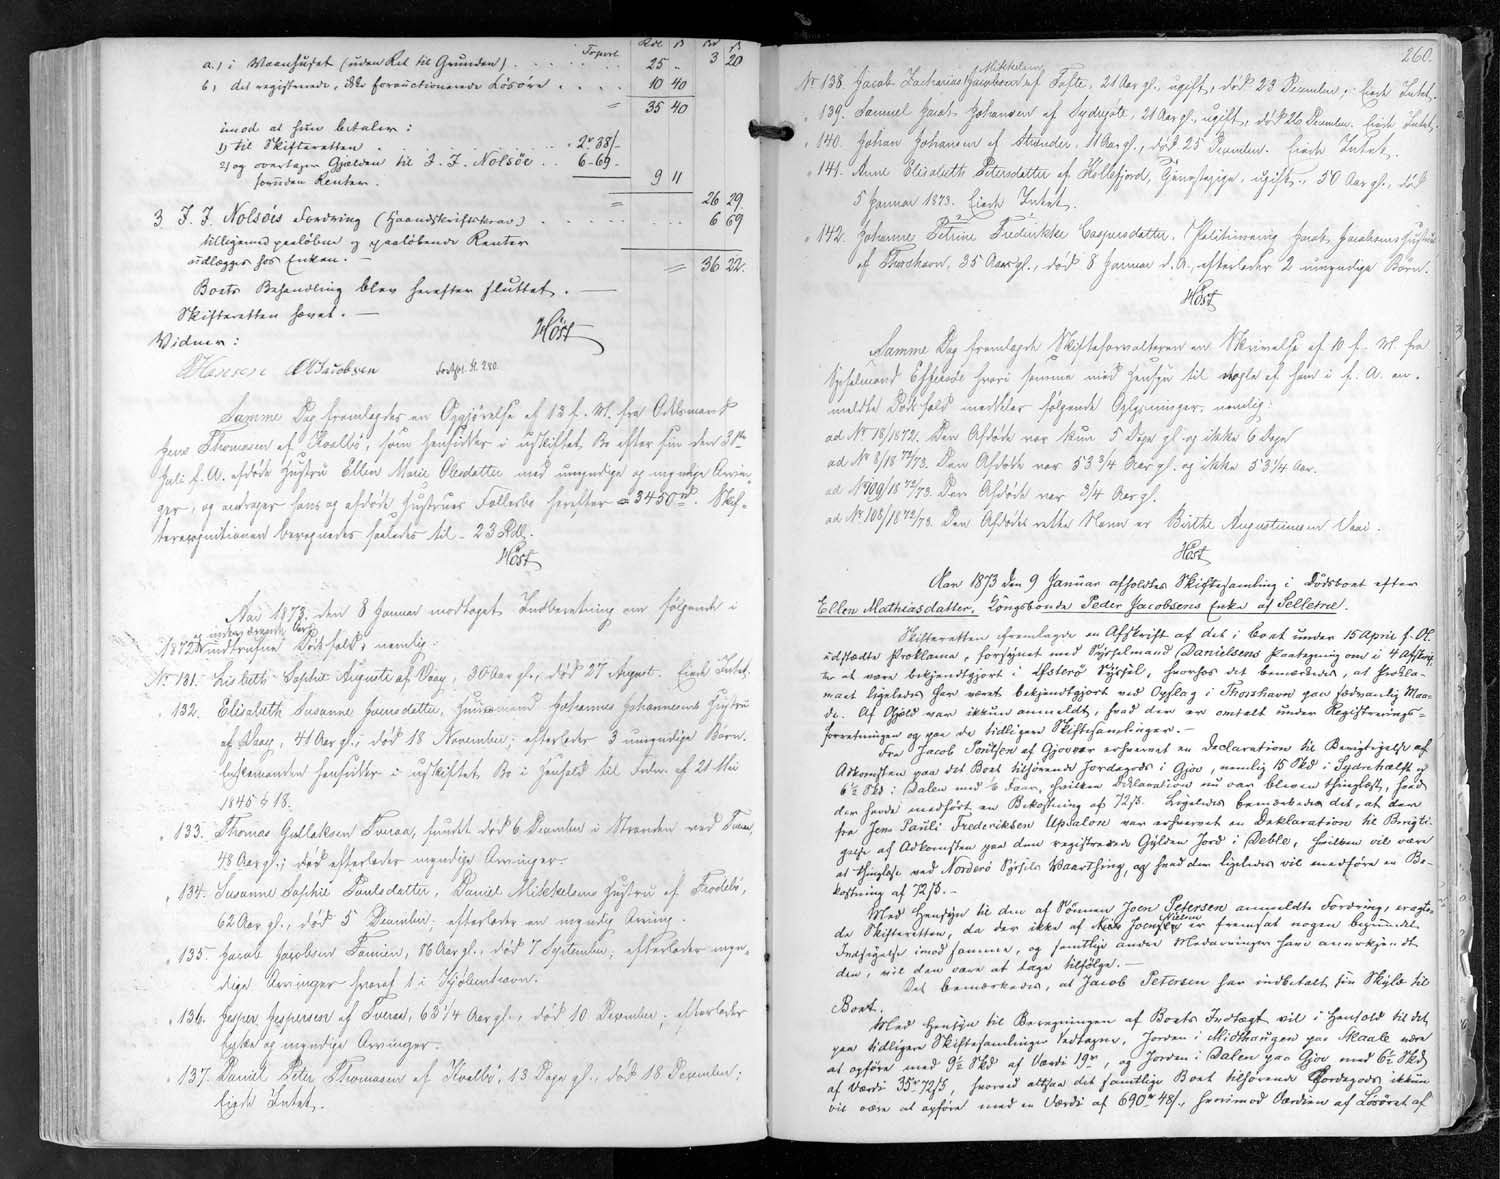 Transport
Rdl β Rd β
a.) i Vaanhuset (uden Ret til Grunden) . . . . 25 „ 3 20
b) det registrerede, ikke forauctionerede Løsøre . . . . 10 40
= 35 40
imod at hun betaler:
1) til Skifteretten . . . . 2 r 38/-
2) og overtager Gjælden til J. J. Nolsöe . . 6-69-
foruden Renter. 9 11
= 26 29
3 J. J. Nolsöes Fordring (Haandskriftskrav) . . . . 6 69
tilligemed paaløbne og paaløbende Renter
udlægges hos Enken. —
= 36 22.
Boets Behandling blev herefter sluttet. —
Skifteretten hævet. —
Höst
Vidner:
Hansen Jacobsen Fortsat fl. 280.
Samme Dag fremlagdes en Opgjørelse af 13 f. M. fra Odelsmand
Jens Thomasen af Kvalbö, som hensidder i uskiftet Bo efter sin den 31te
Juli f. A. afdøde Hustru Ellen Marie Olesdatter med umyndige og myndige Arvin-
ger, og andrager hans og afdøde Hustrues Fællesbo herefter = 3450 rd. Skif-
terecognitionen beregnedes saaledes til - 23 Rdl.
Höst
Aar 1873, den 8 Januar modtoges Indberetning om følgende i
1872 og indeværende Aar indtrufne Dødsfald, nemlig:
No 131. Lisbeth Sophie Auguste af Vaag, 30 Aar gl., død 27 August. Eiede Intet.
„ 132. Elisabeth Susanne Joensdatter, Huusmand Johannes Johannesens Hustru
af Vaag, 41 Aar gl., død 18 November; efterlader 3 umyndige Børn.
Enkemanden hensidder i uskiftet Bo i Henhold til Frdn. af 21 Mai
1845 § 18.
„ 133. Thomas Gullaksen Tveraa, fundet død 6 December i Stranden ved Tveraa,
48 Aar gl.; død efterlader myndige Arvinger.
„ 134. Susanne Sophie Poulsdatter, Daniel Mikkelsens Hustru af Frodebö,
62 Aar gl., død 5 December; efterlader en myndig Arving.
„ 135. Jacob Jacobsen Famien, 86 Aar gl., død 7 September, efterlader myn-
dige Arvinger hvoraf 1 i Kjöbenhavn.
„ 136. Jesper Jespersen af Tveraa, 63 1/4 Aar gl., død 10 December; efterlader
Enke og myndige Arvinger.
„ 137. Daniel Peter Thomasen af Kvalbö, 13 Dage gl., død 18 December;
Eiede Intet.
260.
No 138. Jacob Zacharias Mikkelsen Jacobsen af Tofte, 21 Aar gl., ugift, død 23 December, Eiede Intet.
„ 139. Samuel Jacob Johansen af Sydrejöte, 21 Aar gl., ugift, død 26 December. Eiede Intet.
„ 140. Johan Johansen af Strænder, 11 Aar gl., død 25 December. Eiede Intet.
„ 141. Anne Elisabeth Petersdatter af Kollefjord, ugift., 50 Aar gl., død
5 Januar 1873. Eiede Intet.
„ 142. Johanne Petrine Frederikke Caspersdatter, Politibetjent Jacob Jacobsens Hustru
af Thorshavn, 35 Aar gl., død 8 Januar d. A., efterlader 2 umyndige Børn.
Höst
Samme Dag fremlagde Skifteforvalteren en Skrivelse af 10 f. M. fra
Sysselmand Effersöe hvori samme med Hensyn til nogle af ham i f. A. an-
meldte Dødsfald meddeler følgende Oplysninger, nemlig:
ad No 18/1872. Den Afdøde var kun 5 Dage gl. og ikke 6 Dage
ad No 8/18 72/73. Den Afdøde var 53 3/4 Aar gl. og ikke 53 1/4 Aar.
ad No 109/18 72/73. Den Afdøde var 3/4 Aar gl.
ad No 108/18 72/73. Den Afdødes rette Navn er Birthe Augustinussen Vaai.
Höst
Aar 1873 den 9 Januar afholdtes Skiftesamling i Dødsboet efter
Ellen Mathiasdatter, Kongsbonde Peder Jacobsens Enke af Selletræ.
Skifteretten fremlagde en Afskrift af det i boet under 15 April f. A.
udstædte Proklama, forsynet med Sysselmand Danielsens Paategning om i 4
at være bekjendtgjort i Österö Syssel, hvorhos det bemærkedes, at Prokla-
maet ligeledes har været bekjendtgjort ved Opslag i Thorshavn paa sædvanlig Maa-
de. Af Gjæld var ikkun anmeldt, hvad der er omtalt under Registrerings-
forretningen og paa de tidligere Skiftesamlinger. —
Fra Jacob Poulsen af Gjov var erhvervet en Declaration til Berigtigelse af
Adkomsten paa det Boet tilhørende Jordegods i Gjov, nemlig 15 Skd i Sydrehalft og
6 1/2 Skd i Dalen med 1/2 Faar, hvilken Deklaration nu var bleven thinglæst, hvad
der havde medført en Bekostning af 72 β. Ligeledes bemærkedes det, at der
fra Jens Pauli Frederiksen Upsalon var erhvervet en Deklaration til Berigti-
gelse af Adkomsten paa den registrerede Gylden Jord i Deble, hvilken vil være
at thinglæse ved Norderö Syssels Vaarthing, og hvad der ligeledes vil medføre en Be-
kostning af 72 β. —
Med Hensyn til den af Sønnen Joen Petersen anmeldte Fordring, eragte-
de Skifteretten, da der ikke af Niels Joensen Nielsen er fremsat nogen begrundet
Indsigelse imod samme, og samtlige andre Medarvinger have anerkjendt
den, vil den være at tage tilfølge. —
Det bemærkedes, at Jacob Petersen har indbetalt sin Skyld til
Boet.
Med Hensyn til Beregningen af Boets Indtægt vil i Henhold til det
paa tidligere Skiftesamlinger Vedtagne, Jorden i Midthaugen paa Skaale være
at opføre med 9 1/2 Skd af Værdi 19 r, og Jorden i Dalen paa Gjov med 6 1/2 Skd
af Værdi 35 r 72 β, hvorved altsaa det samtlige Boet tilhørende Jordegods ikkun
vil være at opføre med en Værdi af 690 r 48/-, hvorimod Værdien af Løsøret af